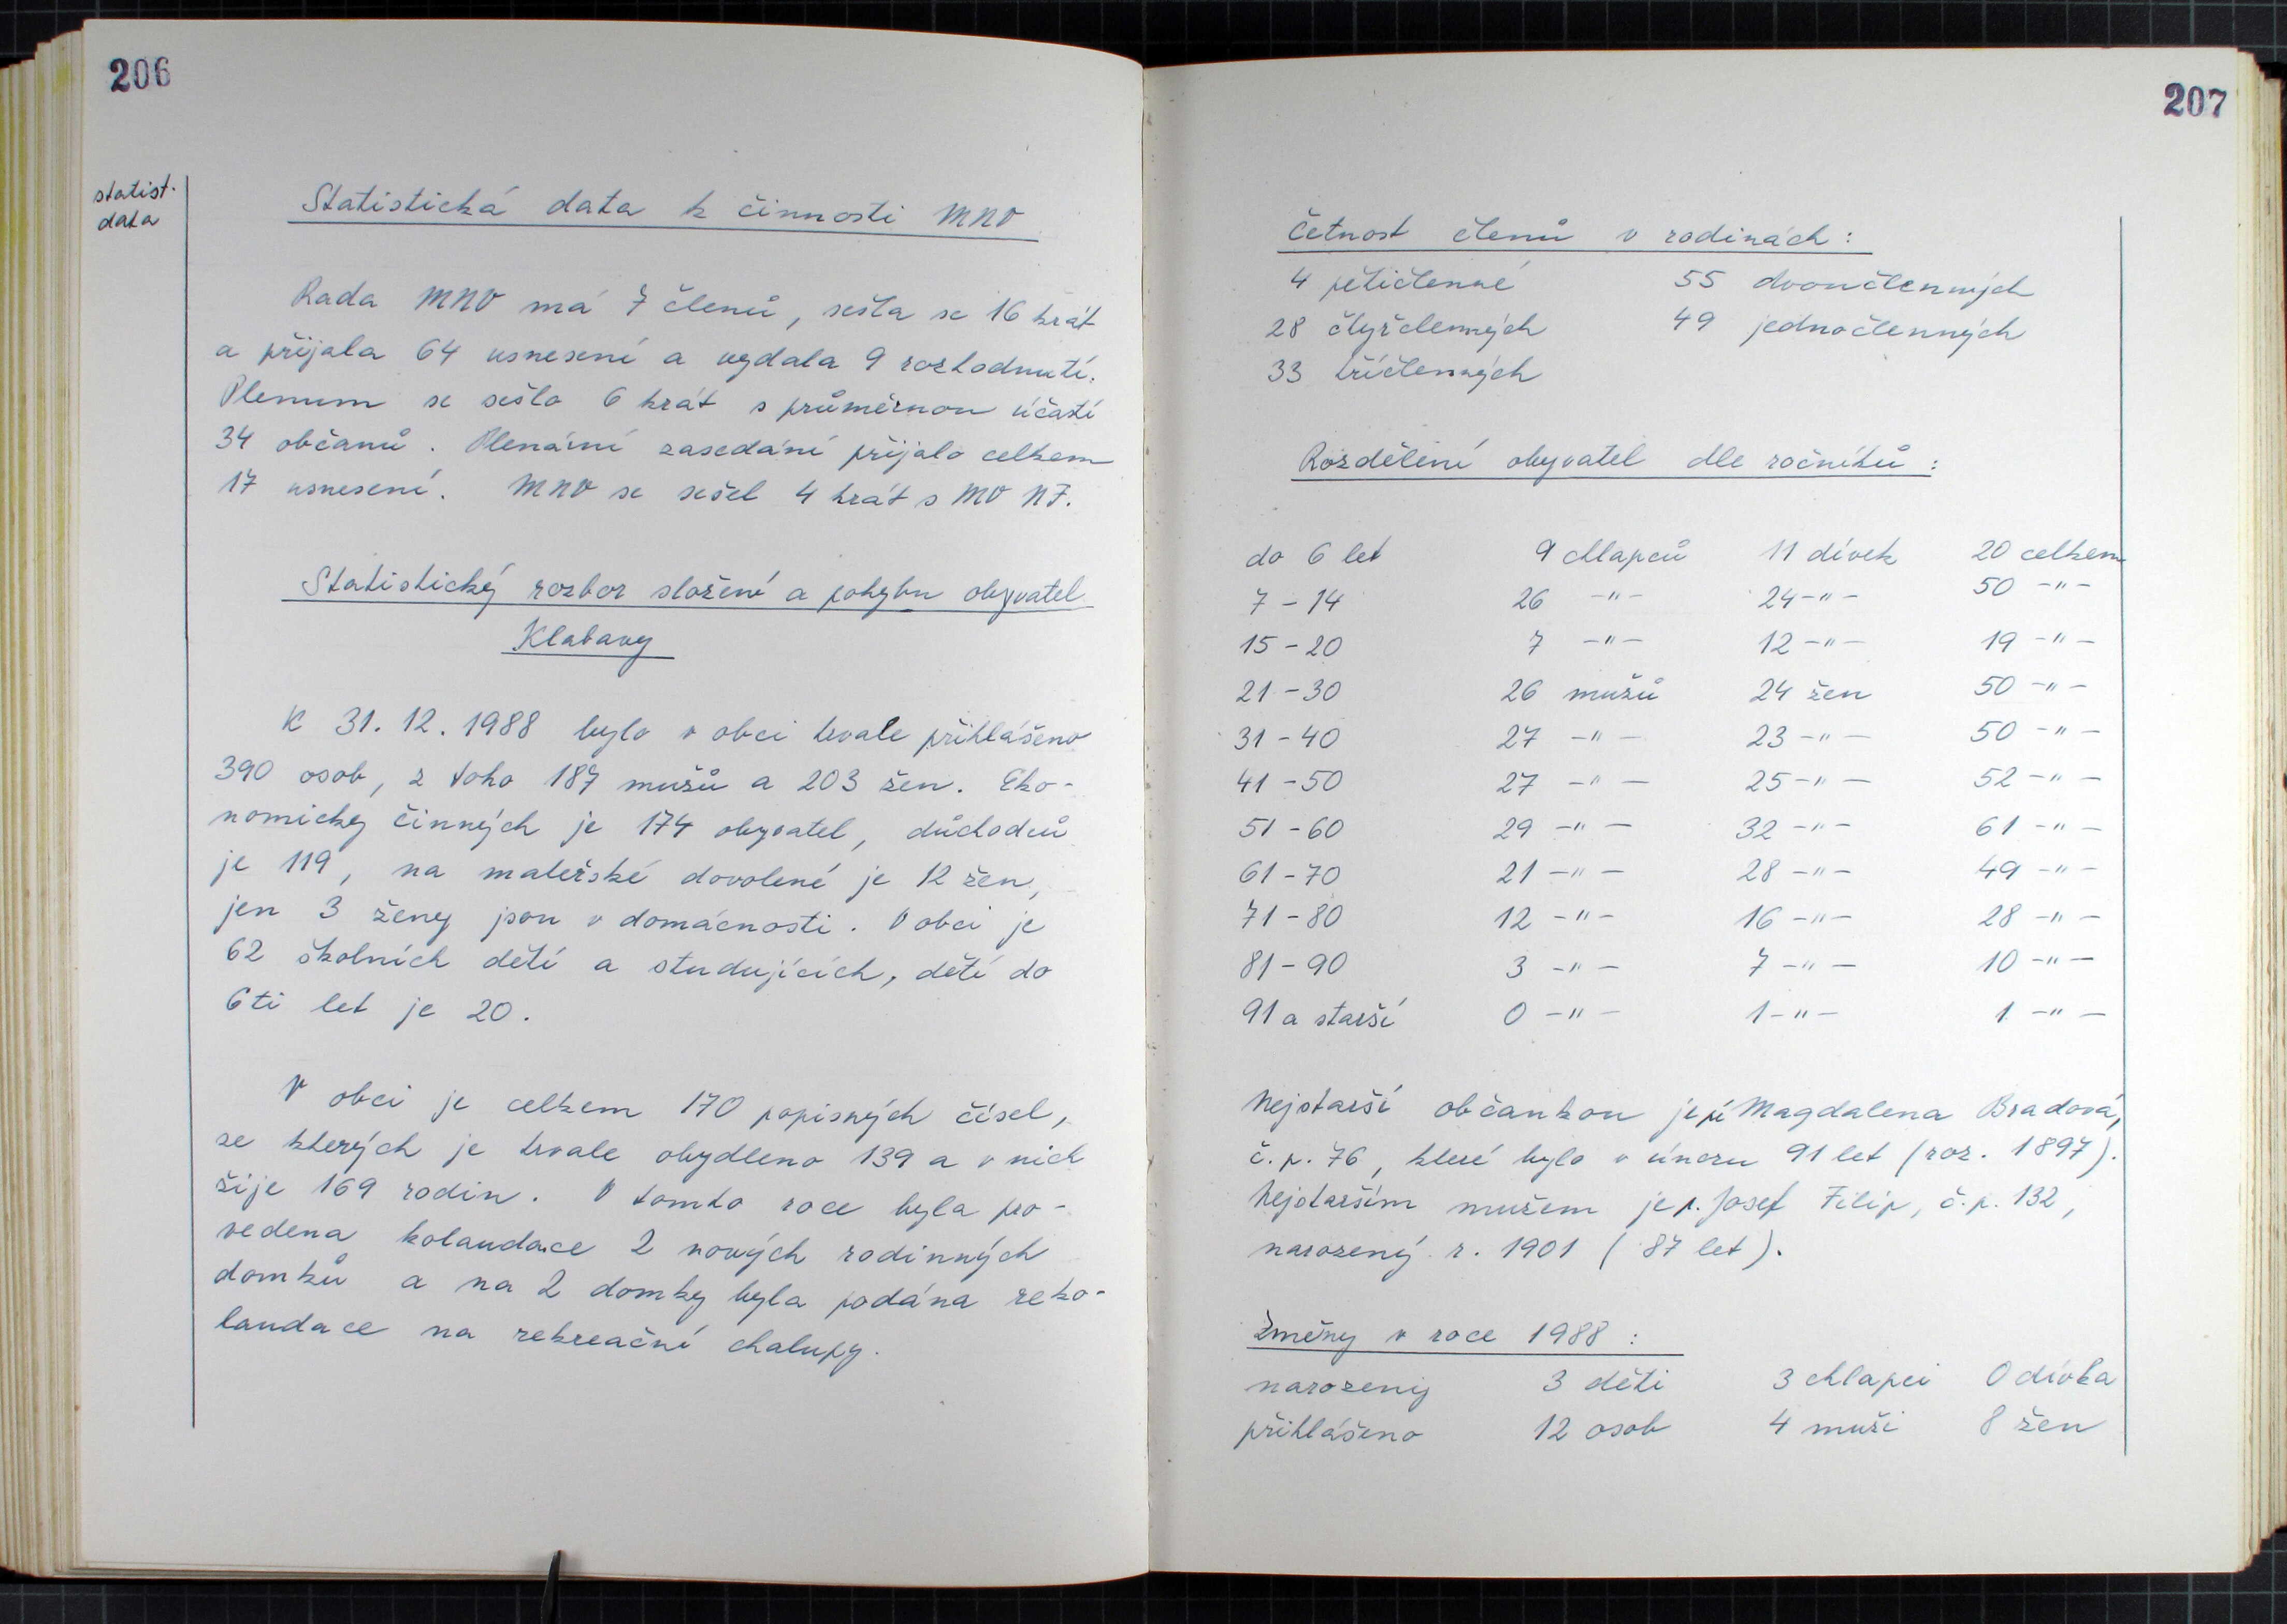 206
statist.
data
Statistická data k činnosti MNV
Rada MNV má 7 členů, sešla se 16 krát
a přijala 64 usnesení a vydala 9 rozhodnutí.
Plenum se sešlo 6 krát s průměrnou účastí
34 občanů. Plenární zasedání přijalo celkem
17 usnesení. MNV se sešel 4 krát s MV NF.
Statistický rozbor složení a pohybu obyvatel
Klabavy
K 31. 12. 1988 bylo v obci trvale přihlášeno
390 osob, z toho 187 mužů a 203 žen. Eko-
nomicky činných je 174 obyvatel, důchodců
je 119, na mateřské dovolené je 12 žen,
jen 3 ženy jsou v domácnosti. V obci je
62 školních dětí a studujících, dětí do
6ti let je 20.
V obci je celkem 170 popisných čísel,
ze kterých je trvale obydleno 139 a v nich
žije 169 rodin. V tomto roce byla pro-
vedena kolaudace 2 nových rodinných
domků a na 2 domky byla podána reko-
laudace na rekreační chalupy.
207
Četnost členů v rodinách:
4 pětičlenné 55 dvoučlenných
28 čtyřčlenných 49 jednočlenných
33 tříčlenných
Rozdělení obyvatel dle ročníků:
do 6 let 9 chlapců 11 dívek 20 celkem
7 - 14 26 -"- 24 -"- 50 -"-
15 - 20 7 -"- 12 -"- 19 -"-
21 - 30 26 mužů 24 žen 50 -"-
31 - 40 27 -"- 23 -"- 50 -"-
41 - 50 27 -"- 25 -"- 52 -"-
51 - 60 29 -"- 32 -"- 61 -"-
61 - 70 21 -"- 28 -"- 49 -"-
71 - 80 12 -"- 16 -"- 28 -"-
81 - 90 3 -"- 7 -"- 10 -"-
91 a starší 0 -"- 1 -"- 1 -"-
Nejstarší občankou je pí Magdalena Bradová,
č.p. 76, které bylo v únoru 91 let (roz. 1897).
Nejstarším mužem je p. Josef Filip, č.p. 132,
narozený r. 1901 (87 let).
Změny v roce 1988:
narozeny 3 děti 3 chlapci 0 dívka
přihlášeno 12 osob 4 muži 8 žen